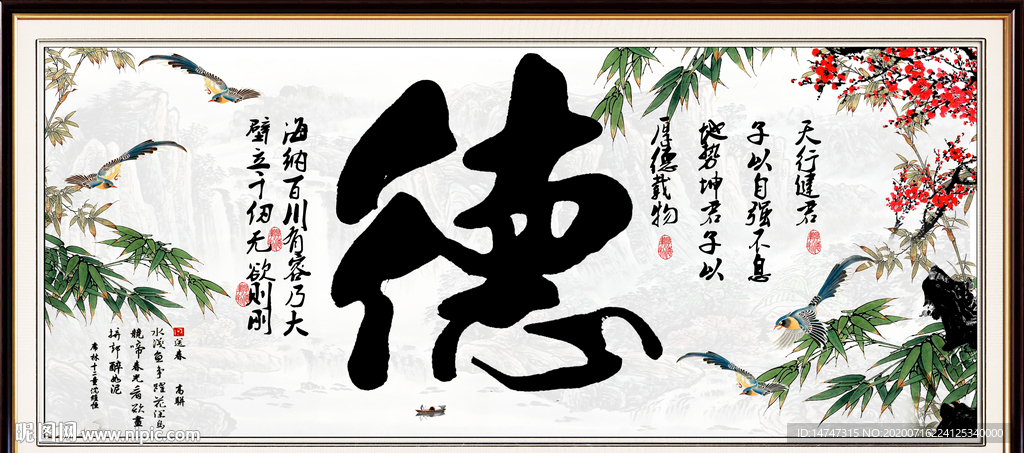 天行健君
子以自强不息
地势坤君子以
厚德载物
德
海纳百川有容乃大
壁立千仞无欲则刚
送春 高駢
水浅鱼争躍花深鸟
競啼春光看欲盡
拚郤醉如泥
昵图网 www.nipic.com
ID:14747315 NO:20200716224125340000